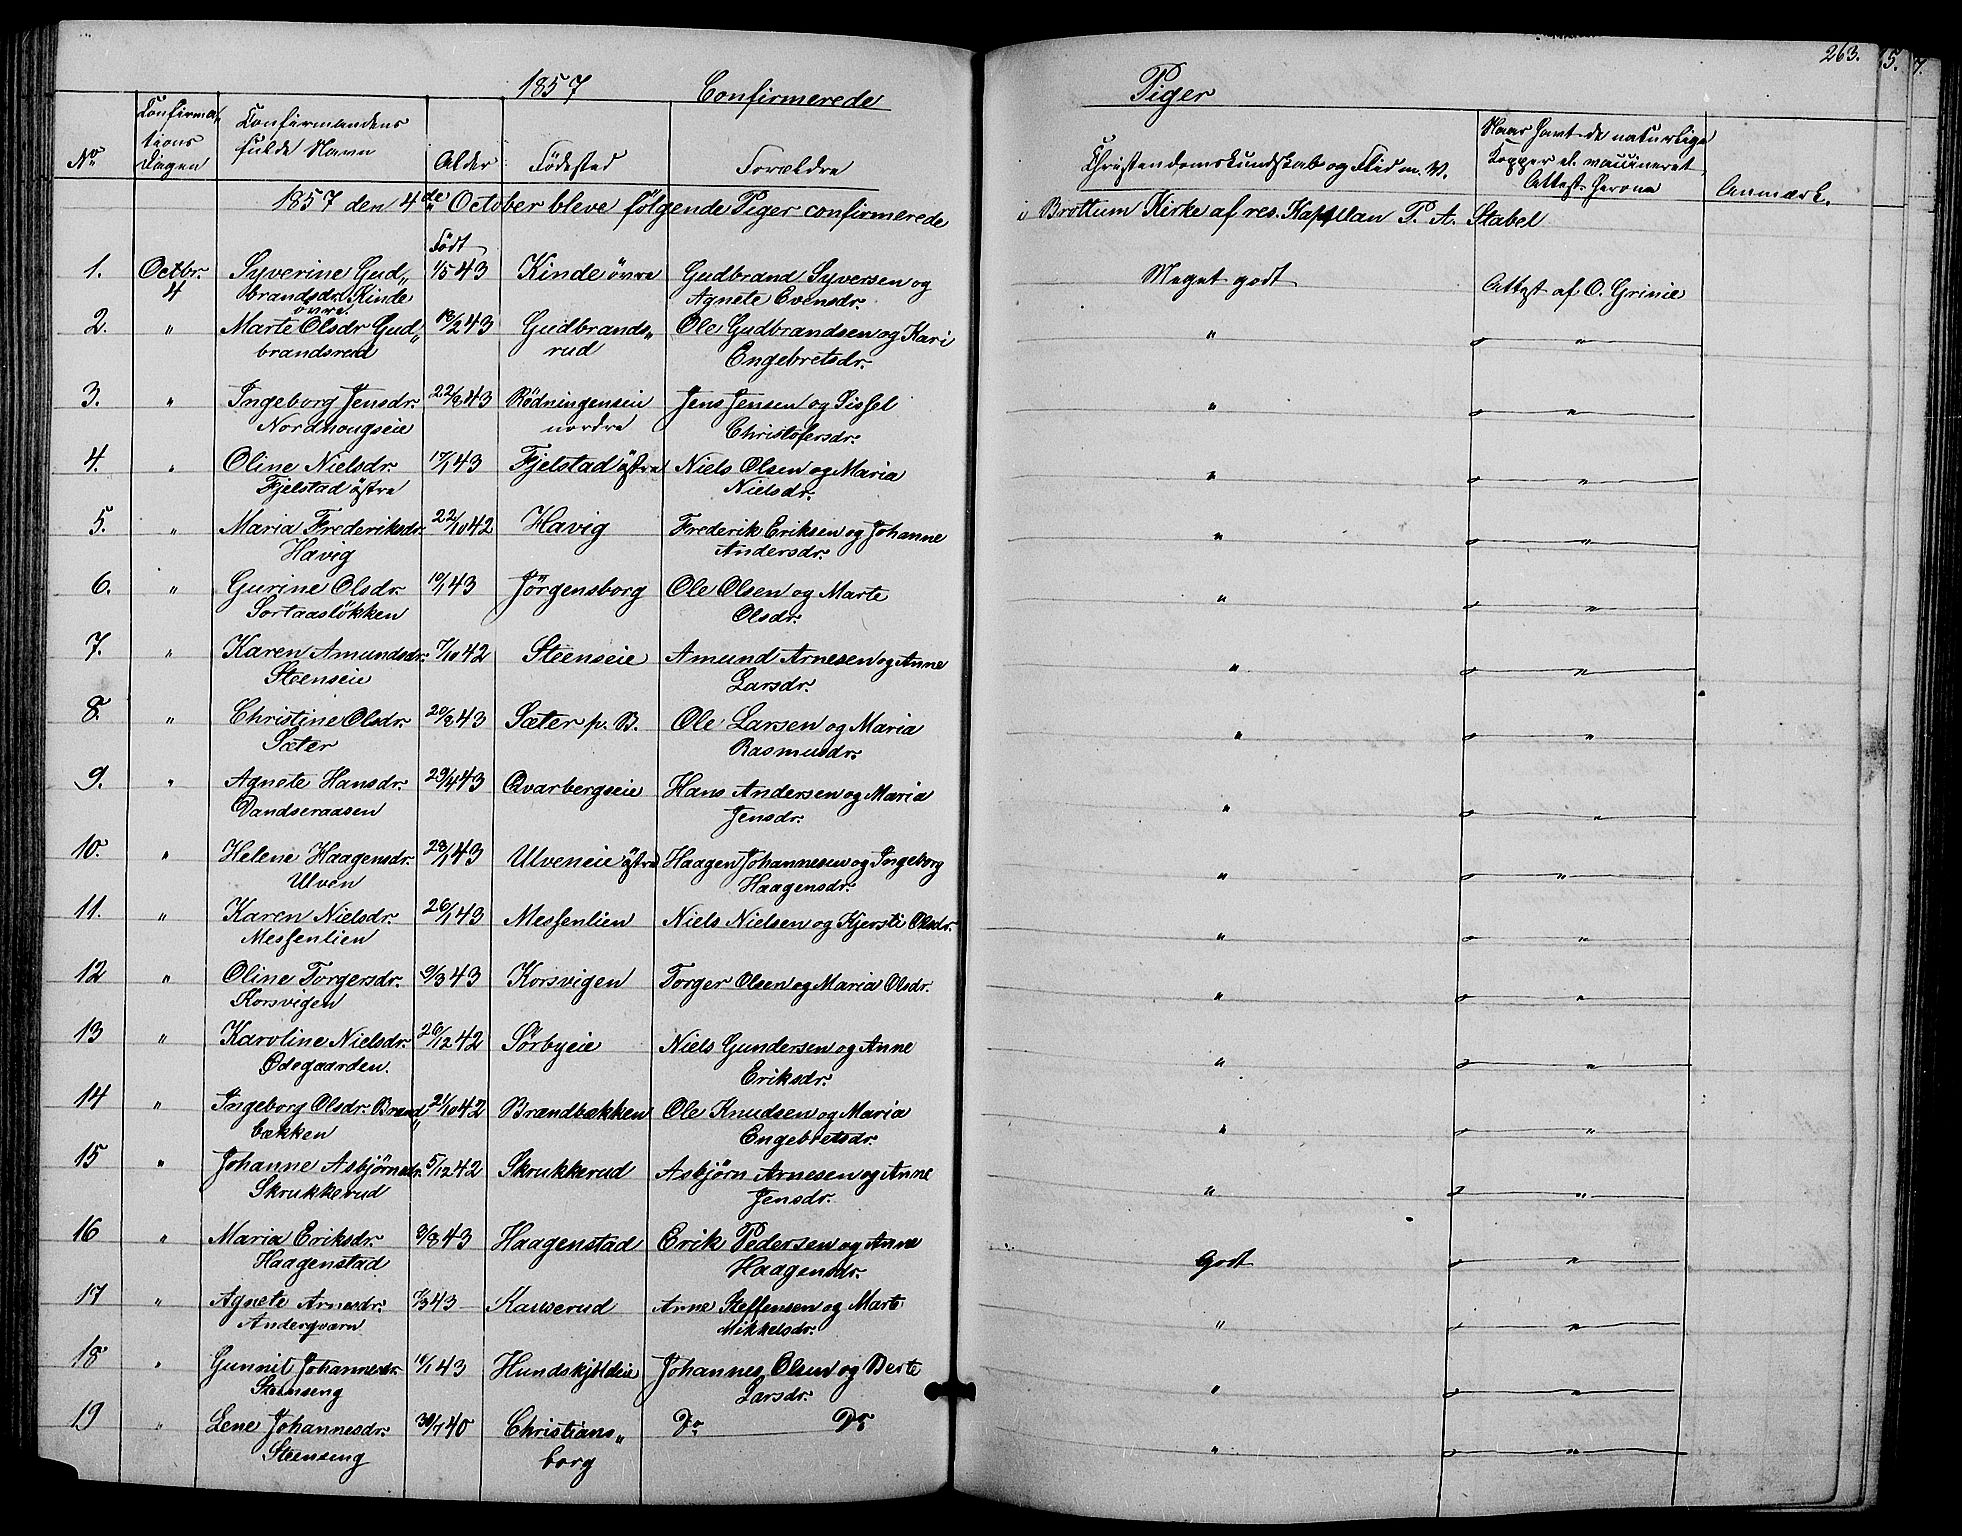 263.
1857 Confirmerede Piger
No
Confirma-
tions
Dagen
Confirmandens
fulde Navn
Alder
Födested
Forældre
Christendomskundskab og Flid m. V.
Naar havt de naturlige
Kopper el. vaccineret,
Attest herom
Anmærk.
1857 den 4de October bleve følgende Piger confirmerede i Brottum Kirke af res. Kapellan P. A. Stabel
Födt
1. Octbr. Syverine Gud„ 1/5 43 Kinde övre Gudbrand Syversen og Meget godt Attest af O. Grinie
4 brandsdr. Kinde Agnete Evensdr.
övre.
2. " Marte Olsdr Gud„ /2 43 Gudbrands„ Ole Gudbrandsen og Kari " "
brandsrud rud Engebretsdr.
3. " Ingeborg Jensdr. 43 Rödningenseie Jens Jensen og Sissel " "
Nordhougseie nordre Christofersdr.
4. " Oline Nielsdr. 17/1 43 Fjelstad östre Niels Olsen og Maria " "
Fjelstad östre Nielsdr.
5. " Maria Frederiksdr. 22/10 42 Havig Frederik Eriksen og Johanne " "
Havig Andersdr.
6. " Gurine Olsdr. 43 Jörgensborg Ole Olsen og Marte " "
Sortaaslökken Olsdr.
7. " Karen Amundsdr. 7/10 42 Steenseie Amund Arnesen og Anne " "
Steenseie Larsdr.
8. " Christine Olsdr. 43 Sæter p. B. Ole Larsen og Maria " "
Sæter Rasmusdr.
9. " Agnete Hansdr. 29/4 43 Qvarbergseie Hans Andersen og Maria " "
Dandseraasen Jensdr.
10. " Helene Haagensdr. 23/1 43 Ulveneie östre Haagen Johannesen og Ingeborg " "
Ulven Haagensdr.
11. " Karen Nielsdr. 26/1 43 Messenlien Niels Nielsen og Kjersti Olsdr. " "
Messenlien
12 " Oline Torgersdr. 9/3 43 Korsvigen Torger Olsen og Maria Olsdr. " "
Korsvigen
13 " Karoline Nielsdr. 26/12 42 Sörbyeie Niels Gundersen og Anne " "
Ödegaarden. Eriksdr.
14 " Ingeborg Olsdr. Brand„ 21/10 42 Brandbækken Ole Knudsen og Maria " "
bækken Engebretsdr.
15 " Johanne Asbjörnsdr. 5/12 42 Skrukkerud Asbjörn Arnesen og Anne " "
Skrukkerud Jensdr.
16 " Maria Eriksdr. 8/3 43 Haagenstad Erik Pedersen og Anne Godt "
Haagenstad Haagensdr.
17 " Agnete Arnesdr. 43 Kauserud Arne Steffensen og Marte " "
Anderqværn Mikkelsdr.
18 " Gunnil Johannesdr. 43 Hundskjöldeie Johannes Olsen og Berte " "
Steenseng Larsdr.
19 " Lene Johannesdr. 30/7 40 Christians„ Do Do " "
Steenseng borg